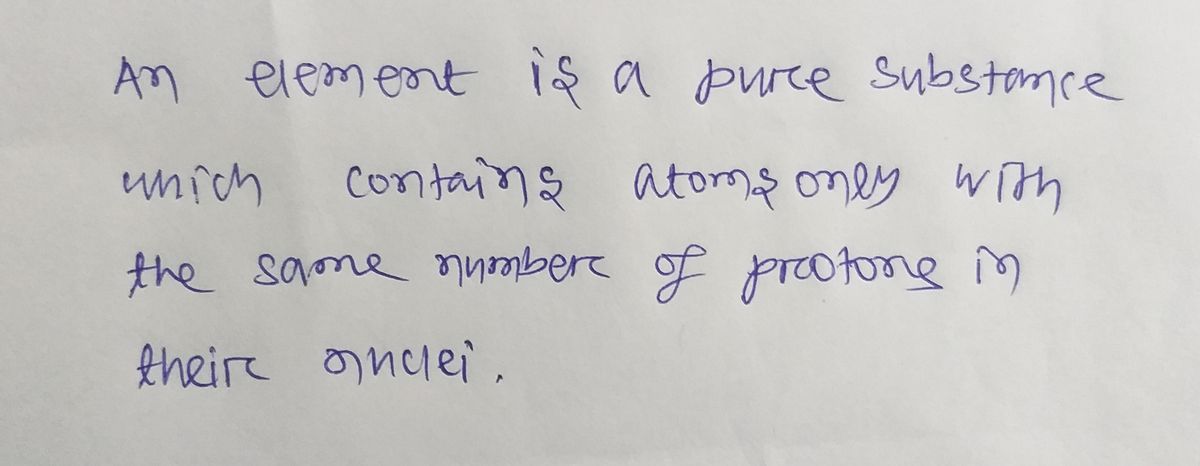 An element is a pure substance
which contains atoms only with
the same number of protons in
their nuclei.